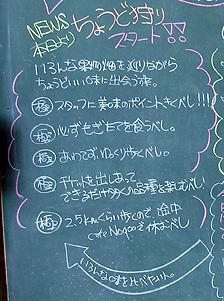 NEWS
本日より
ちょうど狩り
スタート!!
いろんな果物畑を巡りながら
ちょうどいい味に出会う旅。
極 スタッフに美味のポイントをきくべし!!!
極 必ずもぎたてを食うべし。
極 あわてずゆっくり歩くべし。
極 チケットを出しあって
できるだけ多くの品種を楽しむべし!
極 2.5kmくらい歩くので、途中
cafe Noqooで休むべし
いろんな味を比べたい。